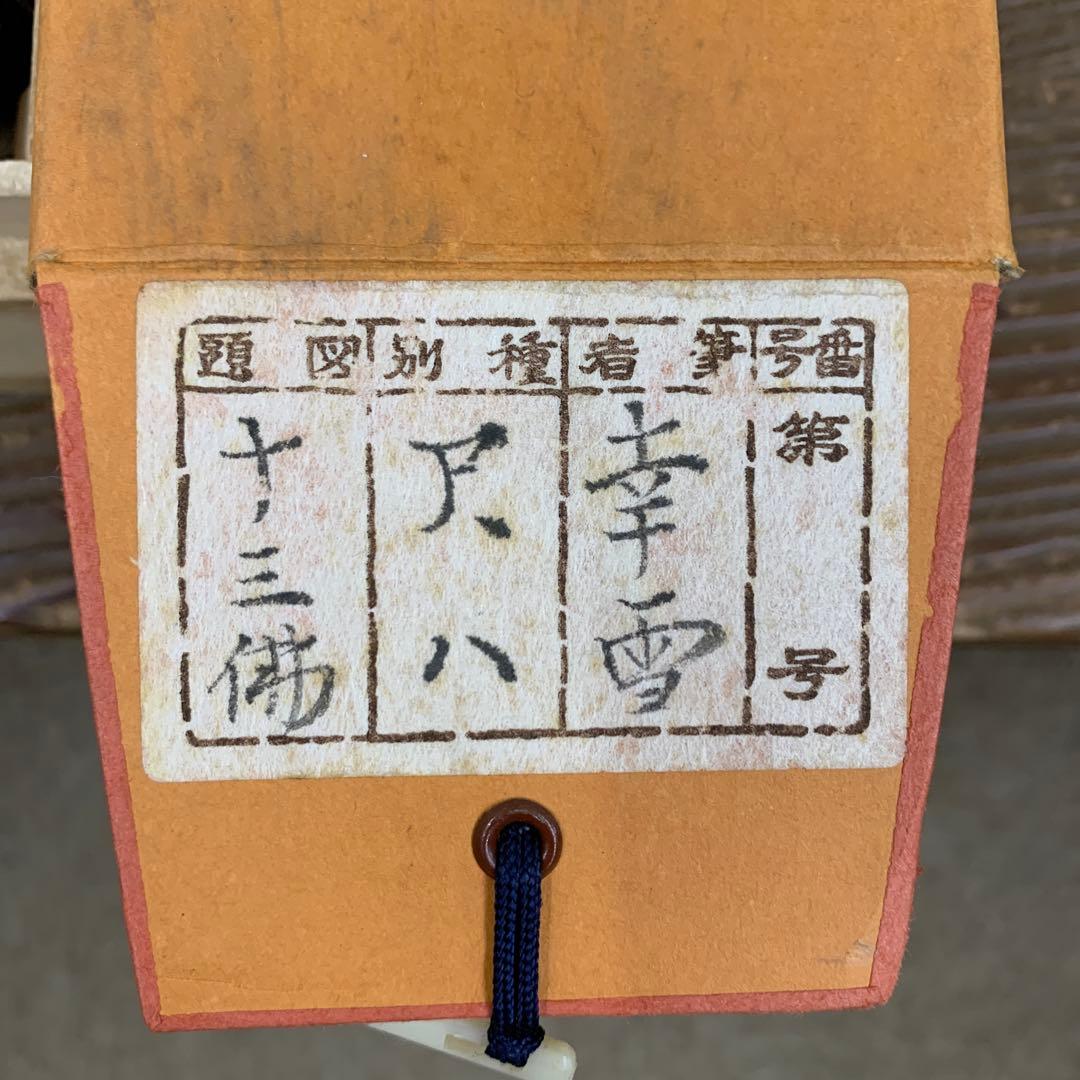 番号
第 号
筆者
幸雪
種別
尺八
図題
十三佛